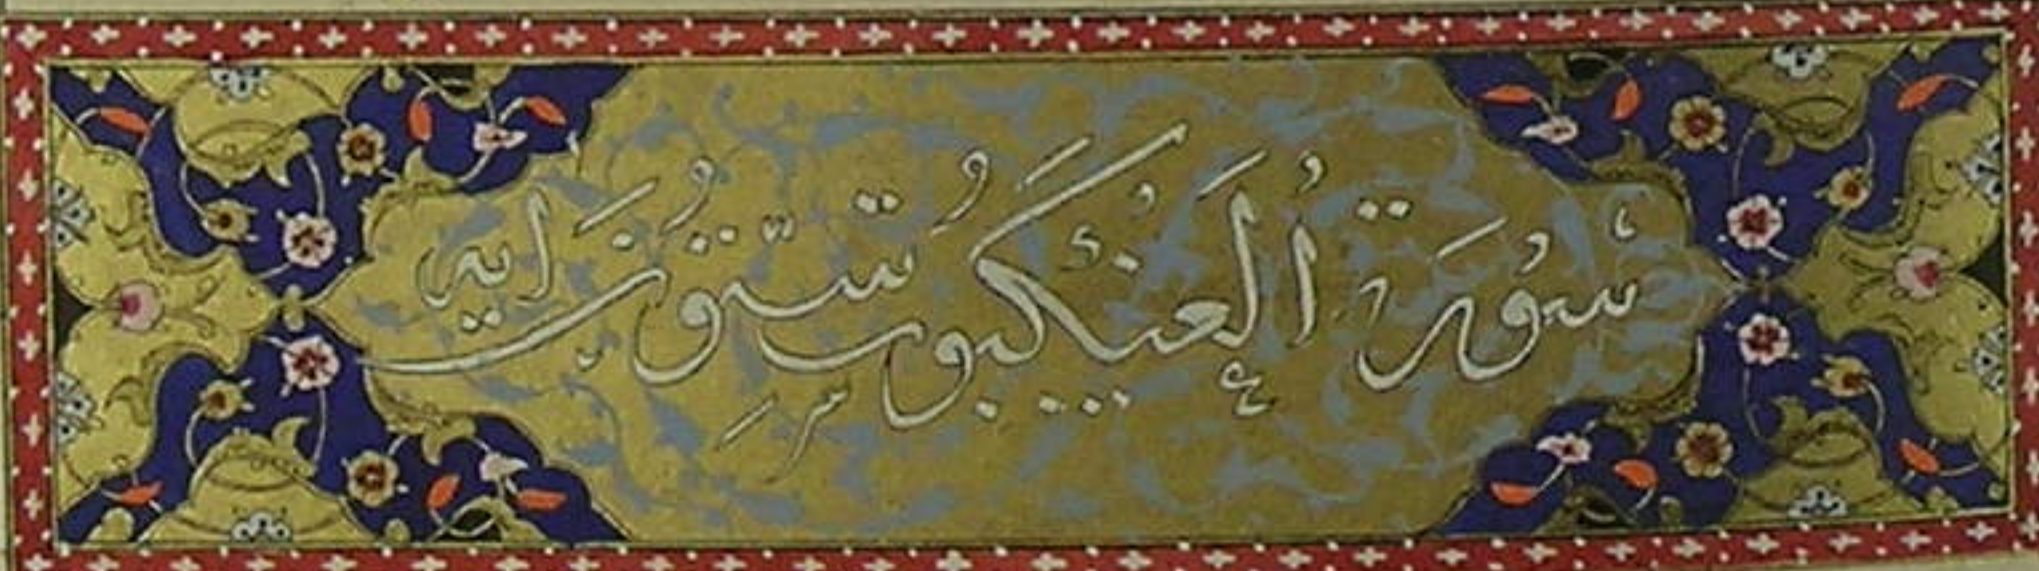 سُورَة الْعَنْكَبُوتِ سِتُّونَ اية